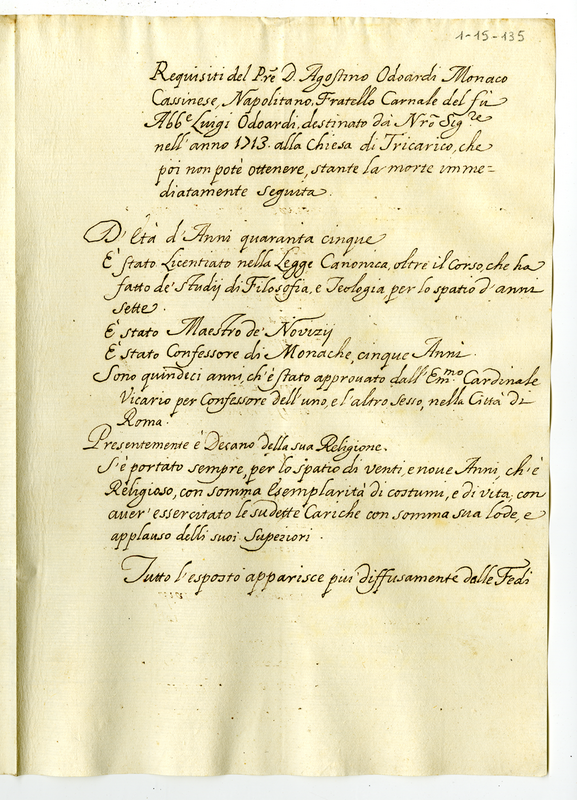 1-15-135
Requisiti del Prẽ D. Agostino Odoardi Monaco
Cassinese, Napolitano, Fratello Carnale del fù
Abb.e Luigi Odoardi, destinato da Nrõ Sig.re
nell'anno 1713. alla Chiesa di Tricarico, che
poi non potè ottenere, stante la morte imme=
diatamente seguita.
D'Età d'Anni quaranta cinque
È stato Licentiato nella Legge Canonica, oltre il Corso, che ha
fatto de' Studij di Filosofia, e Teologia per lo spatio d'anni
sette.
È stato Maestro de' Novizij
È stato Confessore di Monache, cinque Anni.
Sono quindeci anni, ch'è stato approvato dall'Em.mo Cardinale
Vicario per Confessore dell'uno, e l'altro Sesso, nella Città di
Roma.
Presentemente è Decano della sua Religione.
S'è portato sempre, per lo spatio di venti, e nove Anni, ch'è
Religioso, con somma Esemplarità di costumi, e di vita, con
aver' essercitato le sudette Cariche con somma sua lode, e
applauso delli suoi Superiori.
Tutto l'esposto apparisce più diffusamente dalle Fedi